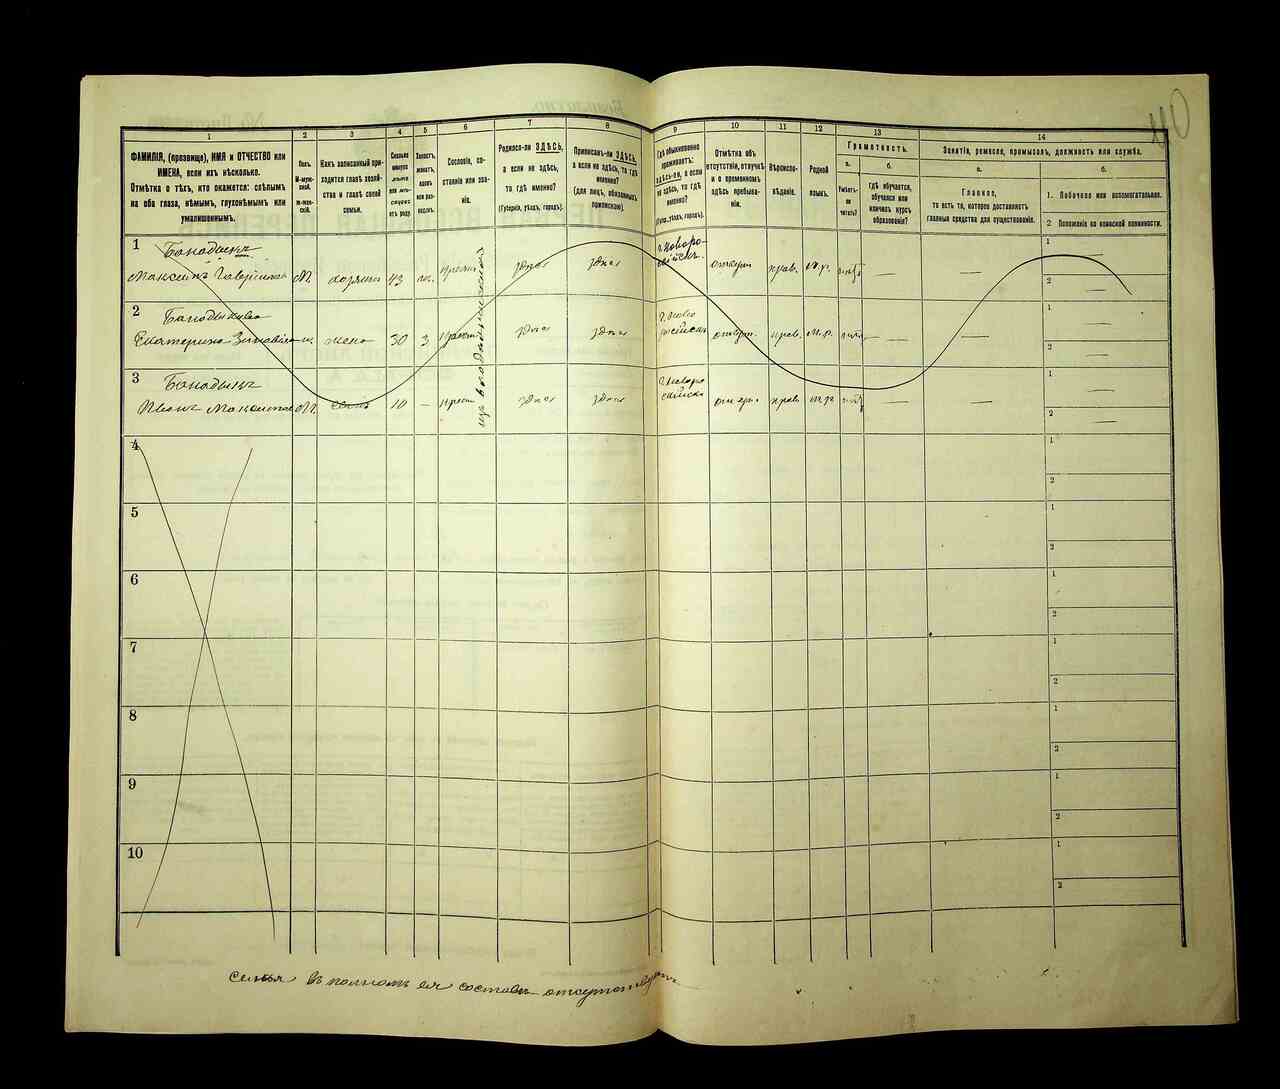 1
2
3
4
5
6
7
8
9
10
11
12
13
14
ФАМИЛІЯ, (прозвище), ИМЯ и ОТЧЕСТВО или
ИМЕНА, если ихъ нѣсколько.
Отмѣтка о тѣхъ, кто окажется: слѣпымъ
на оба глаза, нѣмымъ, глухонѣмымъ или
умалишеннымъ.
Полъ.
М-муж-
ской.
ж-жен-
скій.
Какъ записанный при-
ходится главѣ хозяй-
ства и главѣ своей
семьи.
Сколько
минуло
лѣтъ
или мѣ-
сяцевъ
отъ роду.
Холостъ,
женатъ,
вдовъ
или раз-
веденъ.
Сословіе, со-
стояніе или зва-
ніе.
Родился-ли ЗДѢСЬ,
а если не здѣсь,
то гдѣ именно?
(Губернія, уѣздъ, городъ).
Приписанъ-ли ЗДѢСЬ,
а если не здѣсь, то гдѣ
именно?
(для лицъ, обязанныхъ
припискою).
Гдѣ обыкновенно
проживаетъ:
ЗДѢСЬ-ли, а если
не здѣсь, то гдѣ
именно?
(Губ., уѣздъ, городъ).
Отмѣтка объ
отсутствіи, отлучкѣ
и о временномъ
здѣсь пребыва-
ніи.
Вѣроиспо-
вѣданіе.
Родной
языкъ.
Грамотность.
а.
Умѣетъ-
ли
читать?
б.
гдѣ обучается,
обучался или
кончилъ курсъ
образованія?
Занятіе, ремесло, промыселъ, должность или служба.
а.
Главное,
то есть то, которое доставляетъ
главныя средства для существованія.
б.
1. Побочное или вспомогательное.
2 Положеніе по воинской повинности.
1
Банадыкъ
Максимъ Гаврилов М. хозяинъ 43 ж. крест здѣсь здѣсь г. Новоро-
сійскъ. отлучк прав. м.р. — — 1
2 —
2
Екатерина Зиновіева ж. жена 30 3 крест здѣсь здѣсь г. Ново
россійскъ отлуч. прав. м.р. — — 1
2 —
3
Банадыкъ
Иванъ Максимов М. сынъ 10 — крест здѣсь здѣсь г. Новоро
сійскъ прав. м.р — — 1
2 —
изъ владѣльческихъ
4
1
2
5
1
2
6
1
2
7
1
2
8
1
2
9
1
2
10
1
2
семья въ полномъ ея составѣ отсутствуетъ